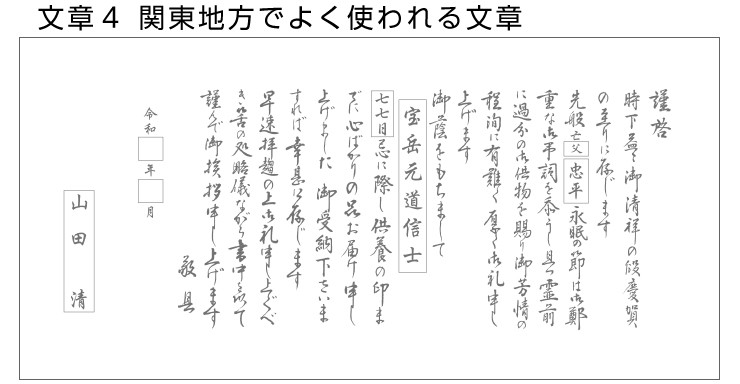 文章４ 関東地方でよく使われる文章
謹啓
時下益々御清祥の段慶賀
の至りに存じます
先般亡父 忠平 永眠の節は御鄭
重な御弔詞を忝うし且つ霊前
に過分の御供物を賜り御芳情の
程洵に有難く厚く御礼申し
上げます
御蔭をもちまして
宝岳元道信士
七七日忌に際し供養の印ま
でに心ばかりの品お届け申し
上げました 御受納下さいま
すれば幸甚に存じます
早速拝趨の上御礼申し上ぐべ
き筈の処略儀ながら書中を以て
謹んで御挨拶申し上げます
敬具
令和 年 月
山田 清